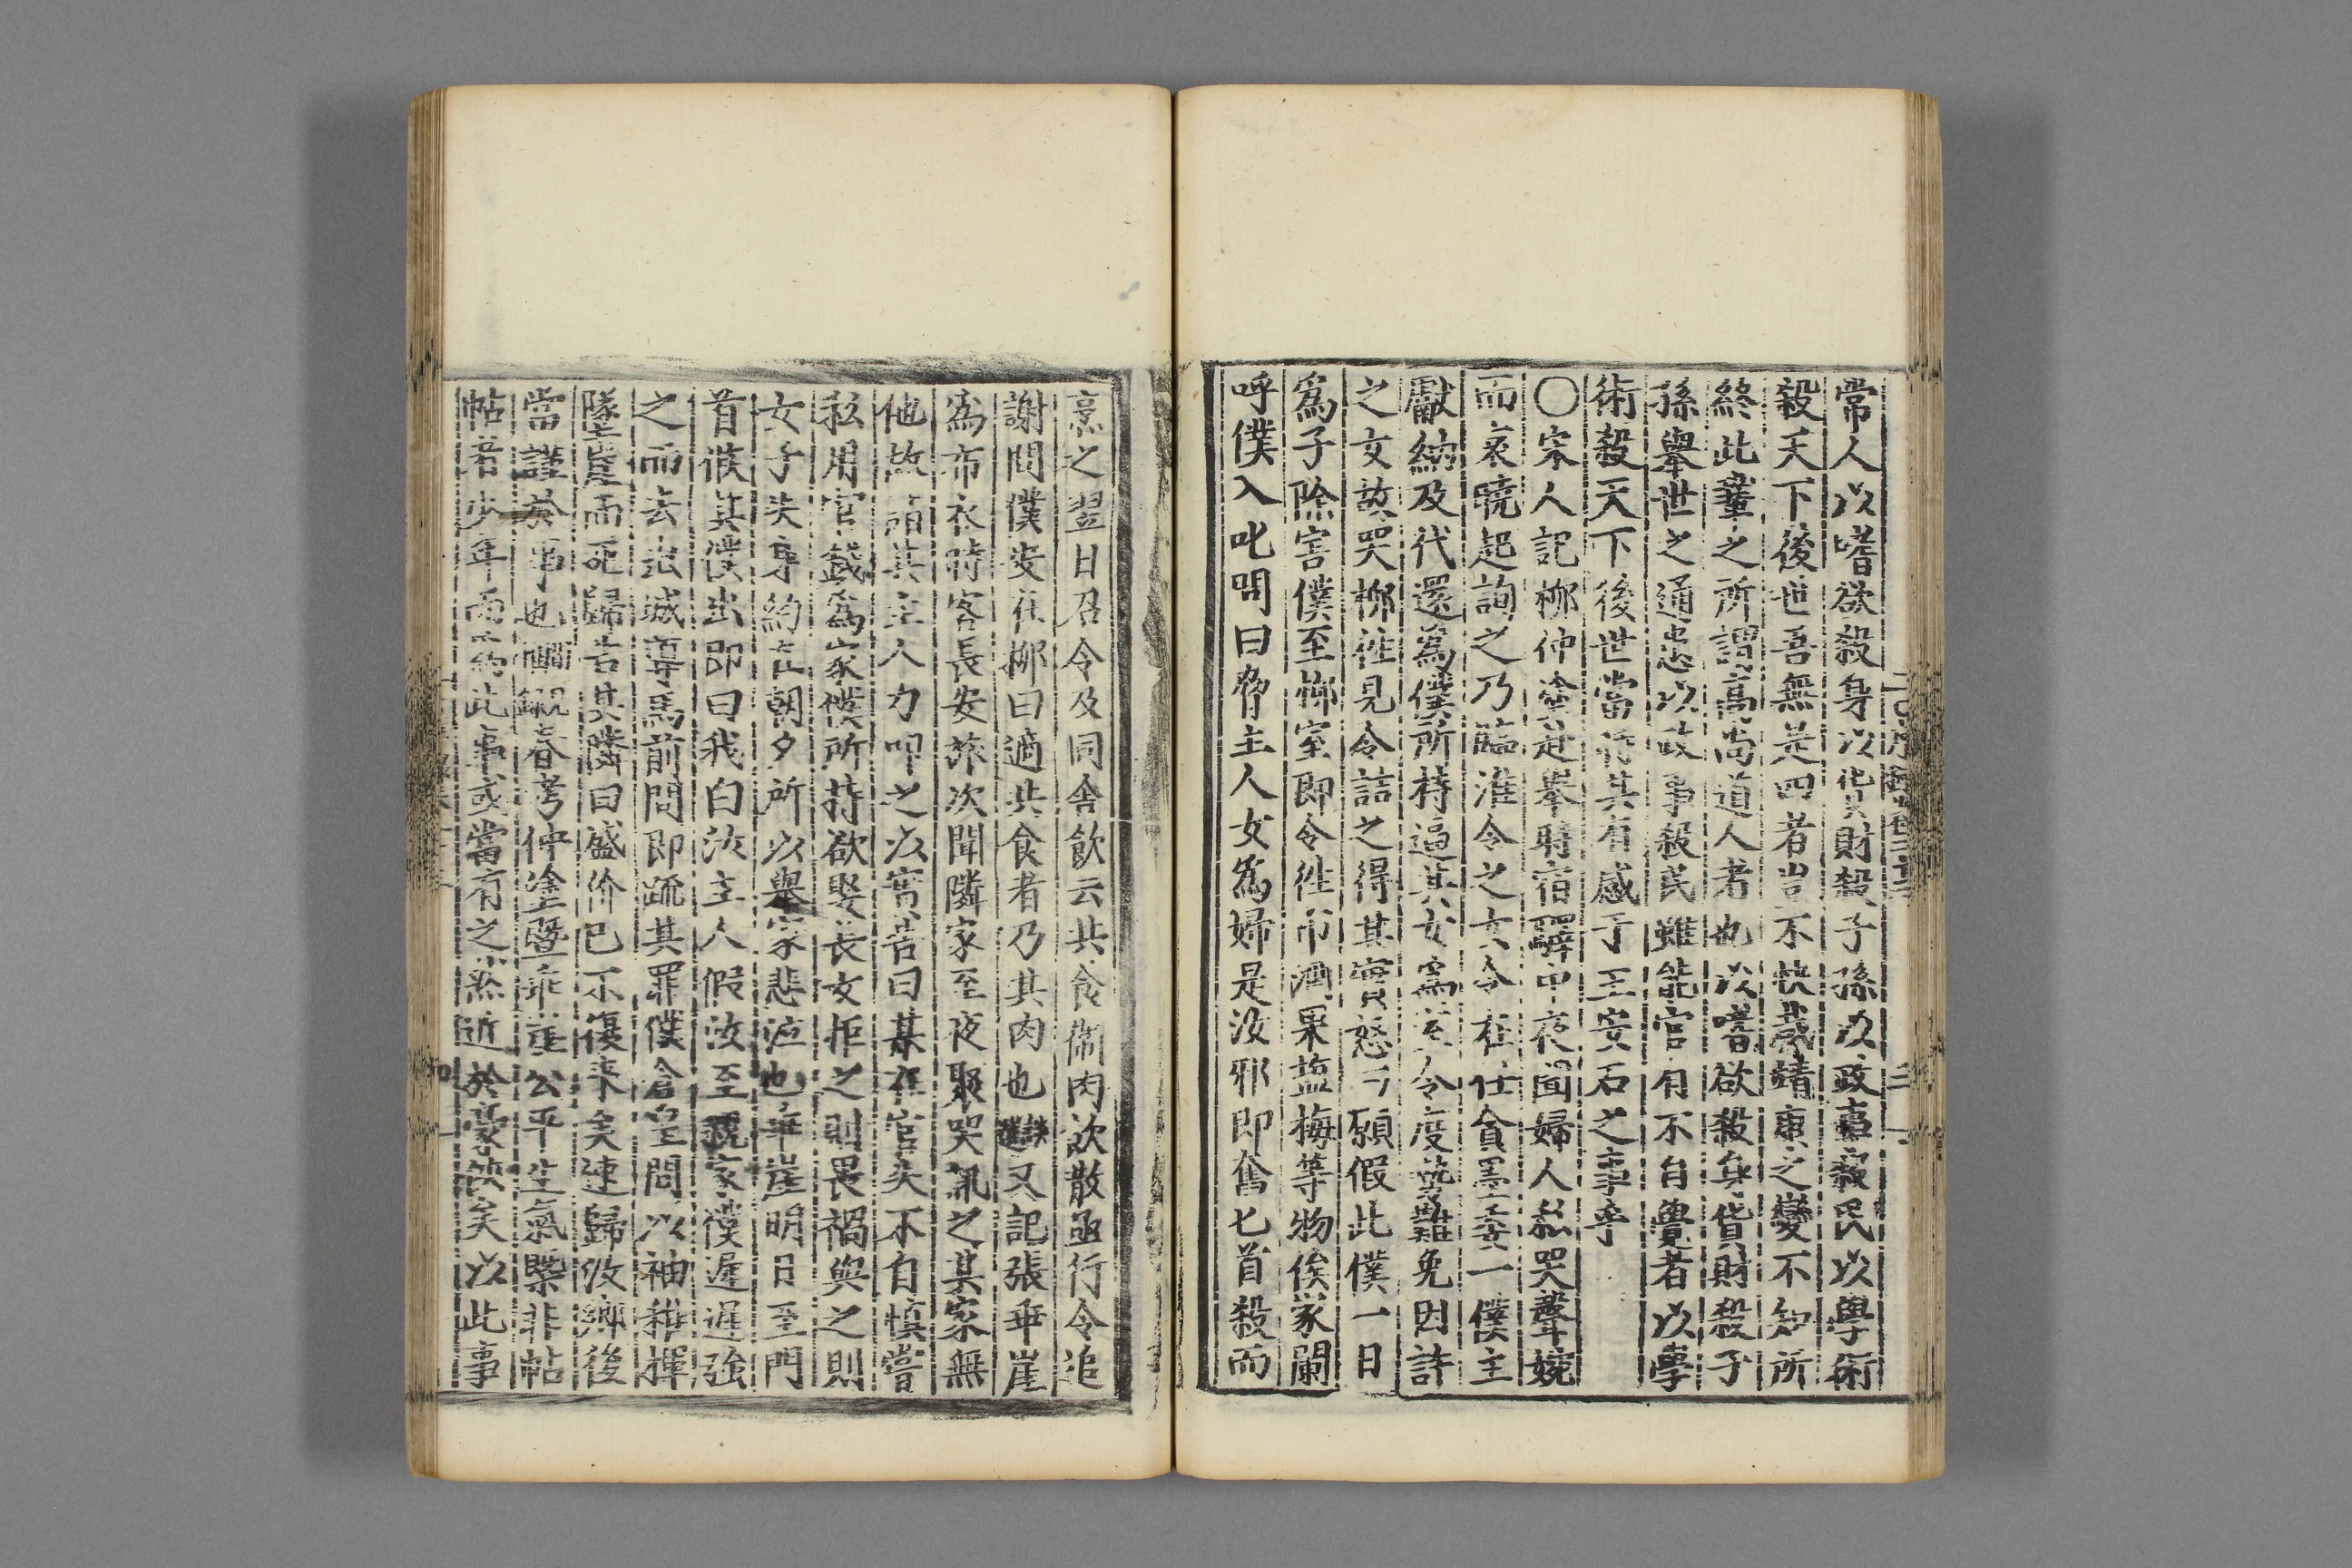 常人以嗜欲殺身以貨財殺子孫以政事殺民以學術
殺天下後世吾無是四者豈不快哉靖康之變不知所
終此輩之所謂高尚道人者也以嗜欲殺身貨財殺子
孫舉世之通患以政事殺民雖能官有不自覺者以學
術殺天下後世當時其有感于王安石之事乎
〇宋人記柳仲塗赴舉時宿驛中夜聞婦人私哭聲婉
而哀曉起詢之乃臨淮令之女令在任貪墨委一僕主
獻納及代還為僕所持逼其女為室令度勢難免因許
之女故哭柳徃見令詰之得其實怒曰願假此僕一日
為子除害僕至柳室即令徃市酒果塩梅等物俟家闌
呼僕入叱問曰脅主人女為婦是汝邪即奮匕首殺而
烹之翌日召令及同舍飲云共食衛肉飲散亟行令追
謝問僕安在柳曰適共食者乃其肉也又記張乖崖
為布衣時客長安旅次聞隣家至夜聚哭訊之其家無
他故詣其主人力叩之以實告曰某在官失不自慎嘗
私用官錢為家僕所持欲娶長女拒之則畏禍與之則
女子失身約在朝夕所以舉家悲泣也乖崖明日至門
首候其僕出即曰我白汝主人假汝至親家僕遲遲強
之而去出城導馬前問即疏其罪僕倉皇間以袖椎揮
墜崖而死歸告其隣曰盛价已不復來矣速歸汝鄉後
當謹於事也考仲塗暨乖崖公平生氣槩非帖
帖者少年而為此事或當有之然近於豪俠矣以此事